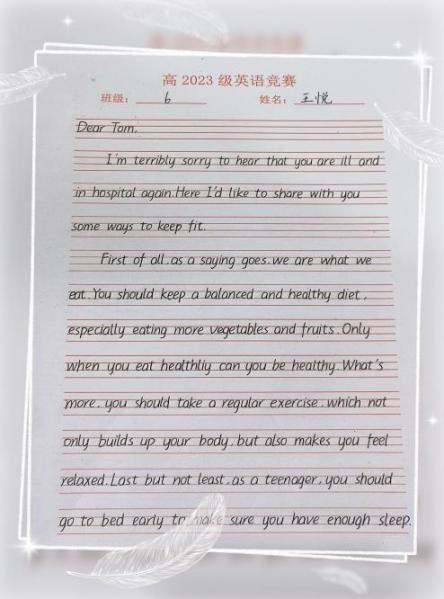 高 2023 级英语竞赛
班级： 6 姓名： 王悦
Dear Tom.
I'm terribly sorry to hear that you are ill and
in hospital again.Here I'd like to share with you
some ways to keep fit.
First of all.as a saying goes.we are what we
eat.You should keep a balanced and healthy diet,
especially eating more vegetables and fruits.Only
when you eat healthliy can you be healthy.What's
more.you should take a regular exercise.which not
only builds up your body.but also makes you feel
relaxed.Last but not least.as a teenager.you should
go to bed early to make sure you have enough sleep.